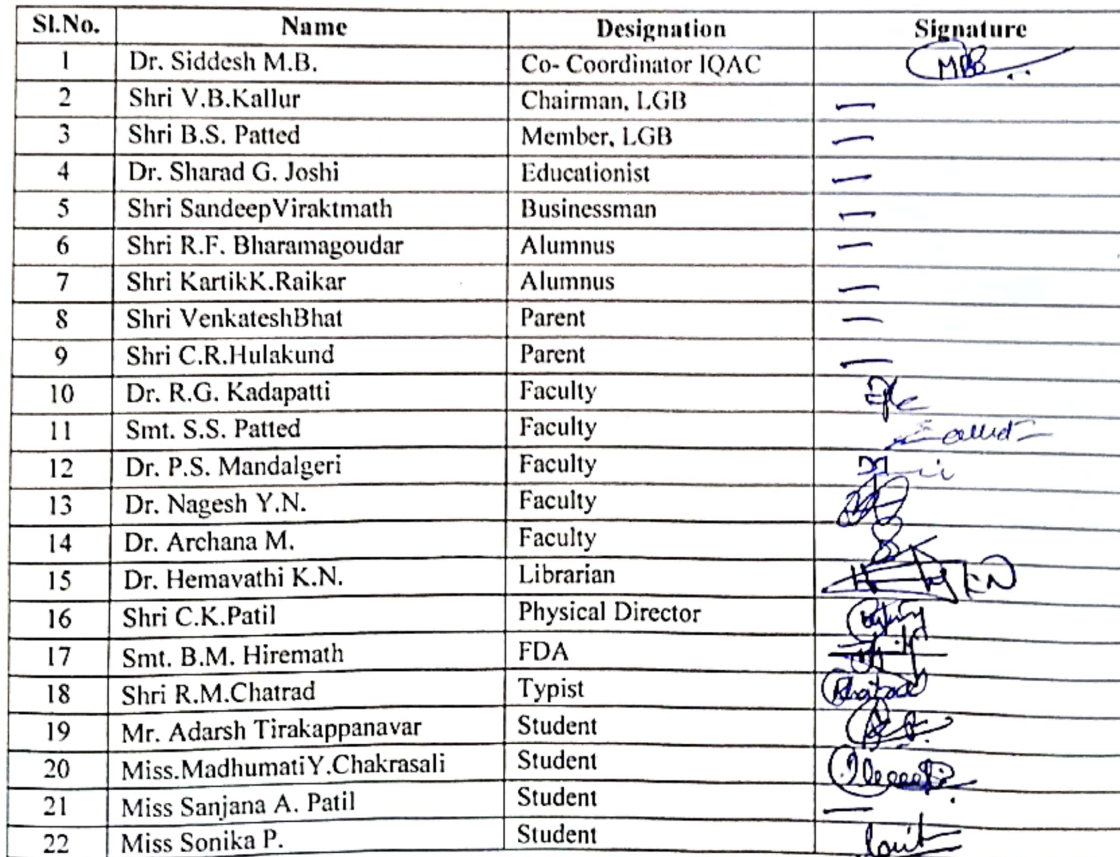 Sl.No. Name Designation Signature
1 Dr. Siddesh M.B. Co- Coordinator IQAC MBB
2 Shri V.B.Kallur Chairman, LGB —
3 Shri B.S. Patted Member, LGB —
4 Dr. Sharad G. Joshi Educationist —
5 Shri SandeepViraktmath Businessman —
6 Shri R.F. Bharamagoudar Alumnus —
7 Shri KartikK.Raikar Alumnus —
8 Shri VenkateshBhat Parent —
9 Shri C.R.Hulakund Parent —
10 Dr. R.G. Kadapatti Faculty
11 Smt. S.S. Patted Faculty
12 Dr. P.S. Mandalgeri Faculty
13 Dr. Nagesh Y.N. Faculty
14 Dr. Archana M. Faculty
15 Dr. Hemavathi K.N. Librarian
16 Shri C.K.Patil Physical Director
17 Smt. B.M. Hiremath FDA
18 Shri R.M.Chatrad Typist
19 Mr. Adarsh Tirakappanavar Student
20 Miss.MadhumatiY.Chakrasali Student
21 Miss Sanjana A. Patil Student —
22 Miss Sonika P. Student